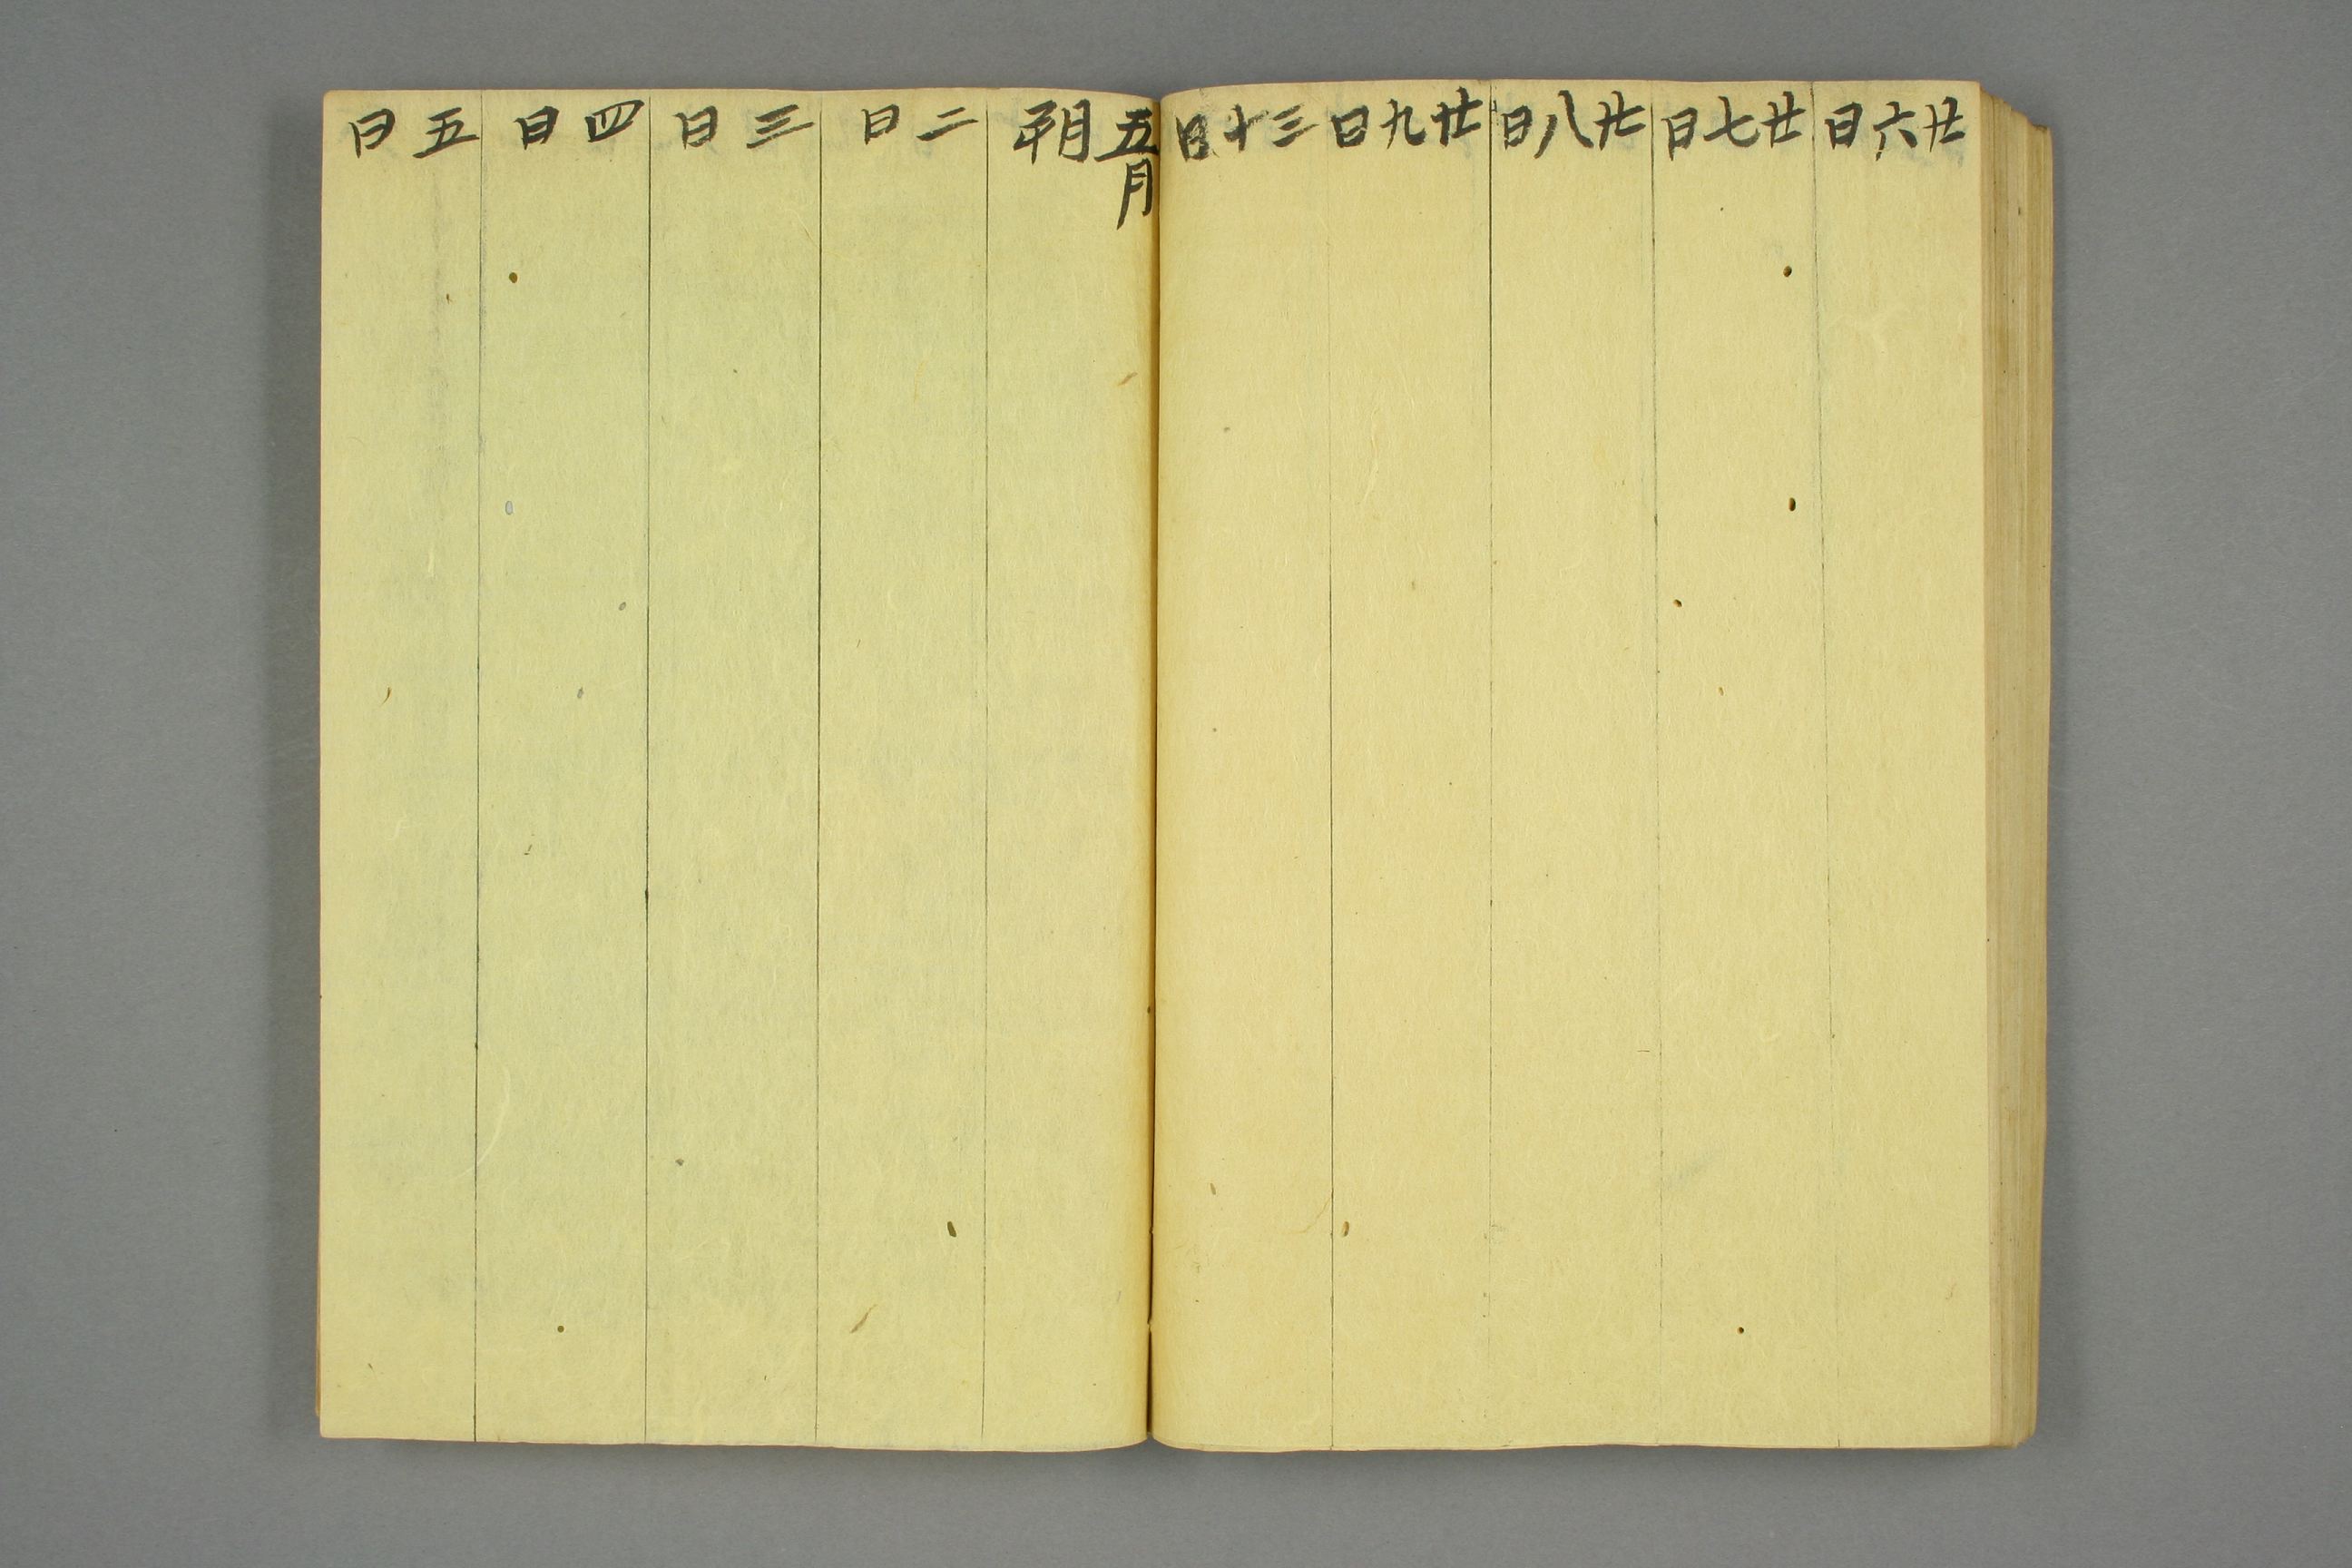 廿六日
廿七日
廿八日
廿九日
三十日
五月
朔
二日
三日
四日
五日